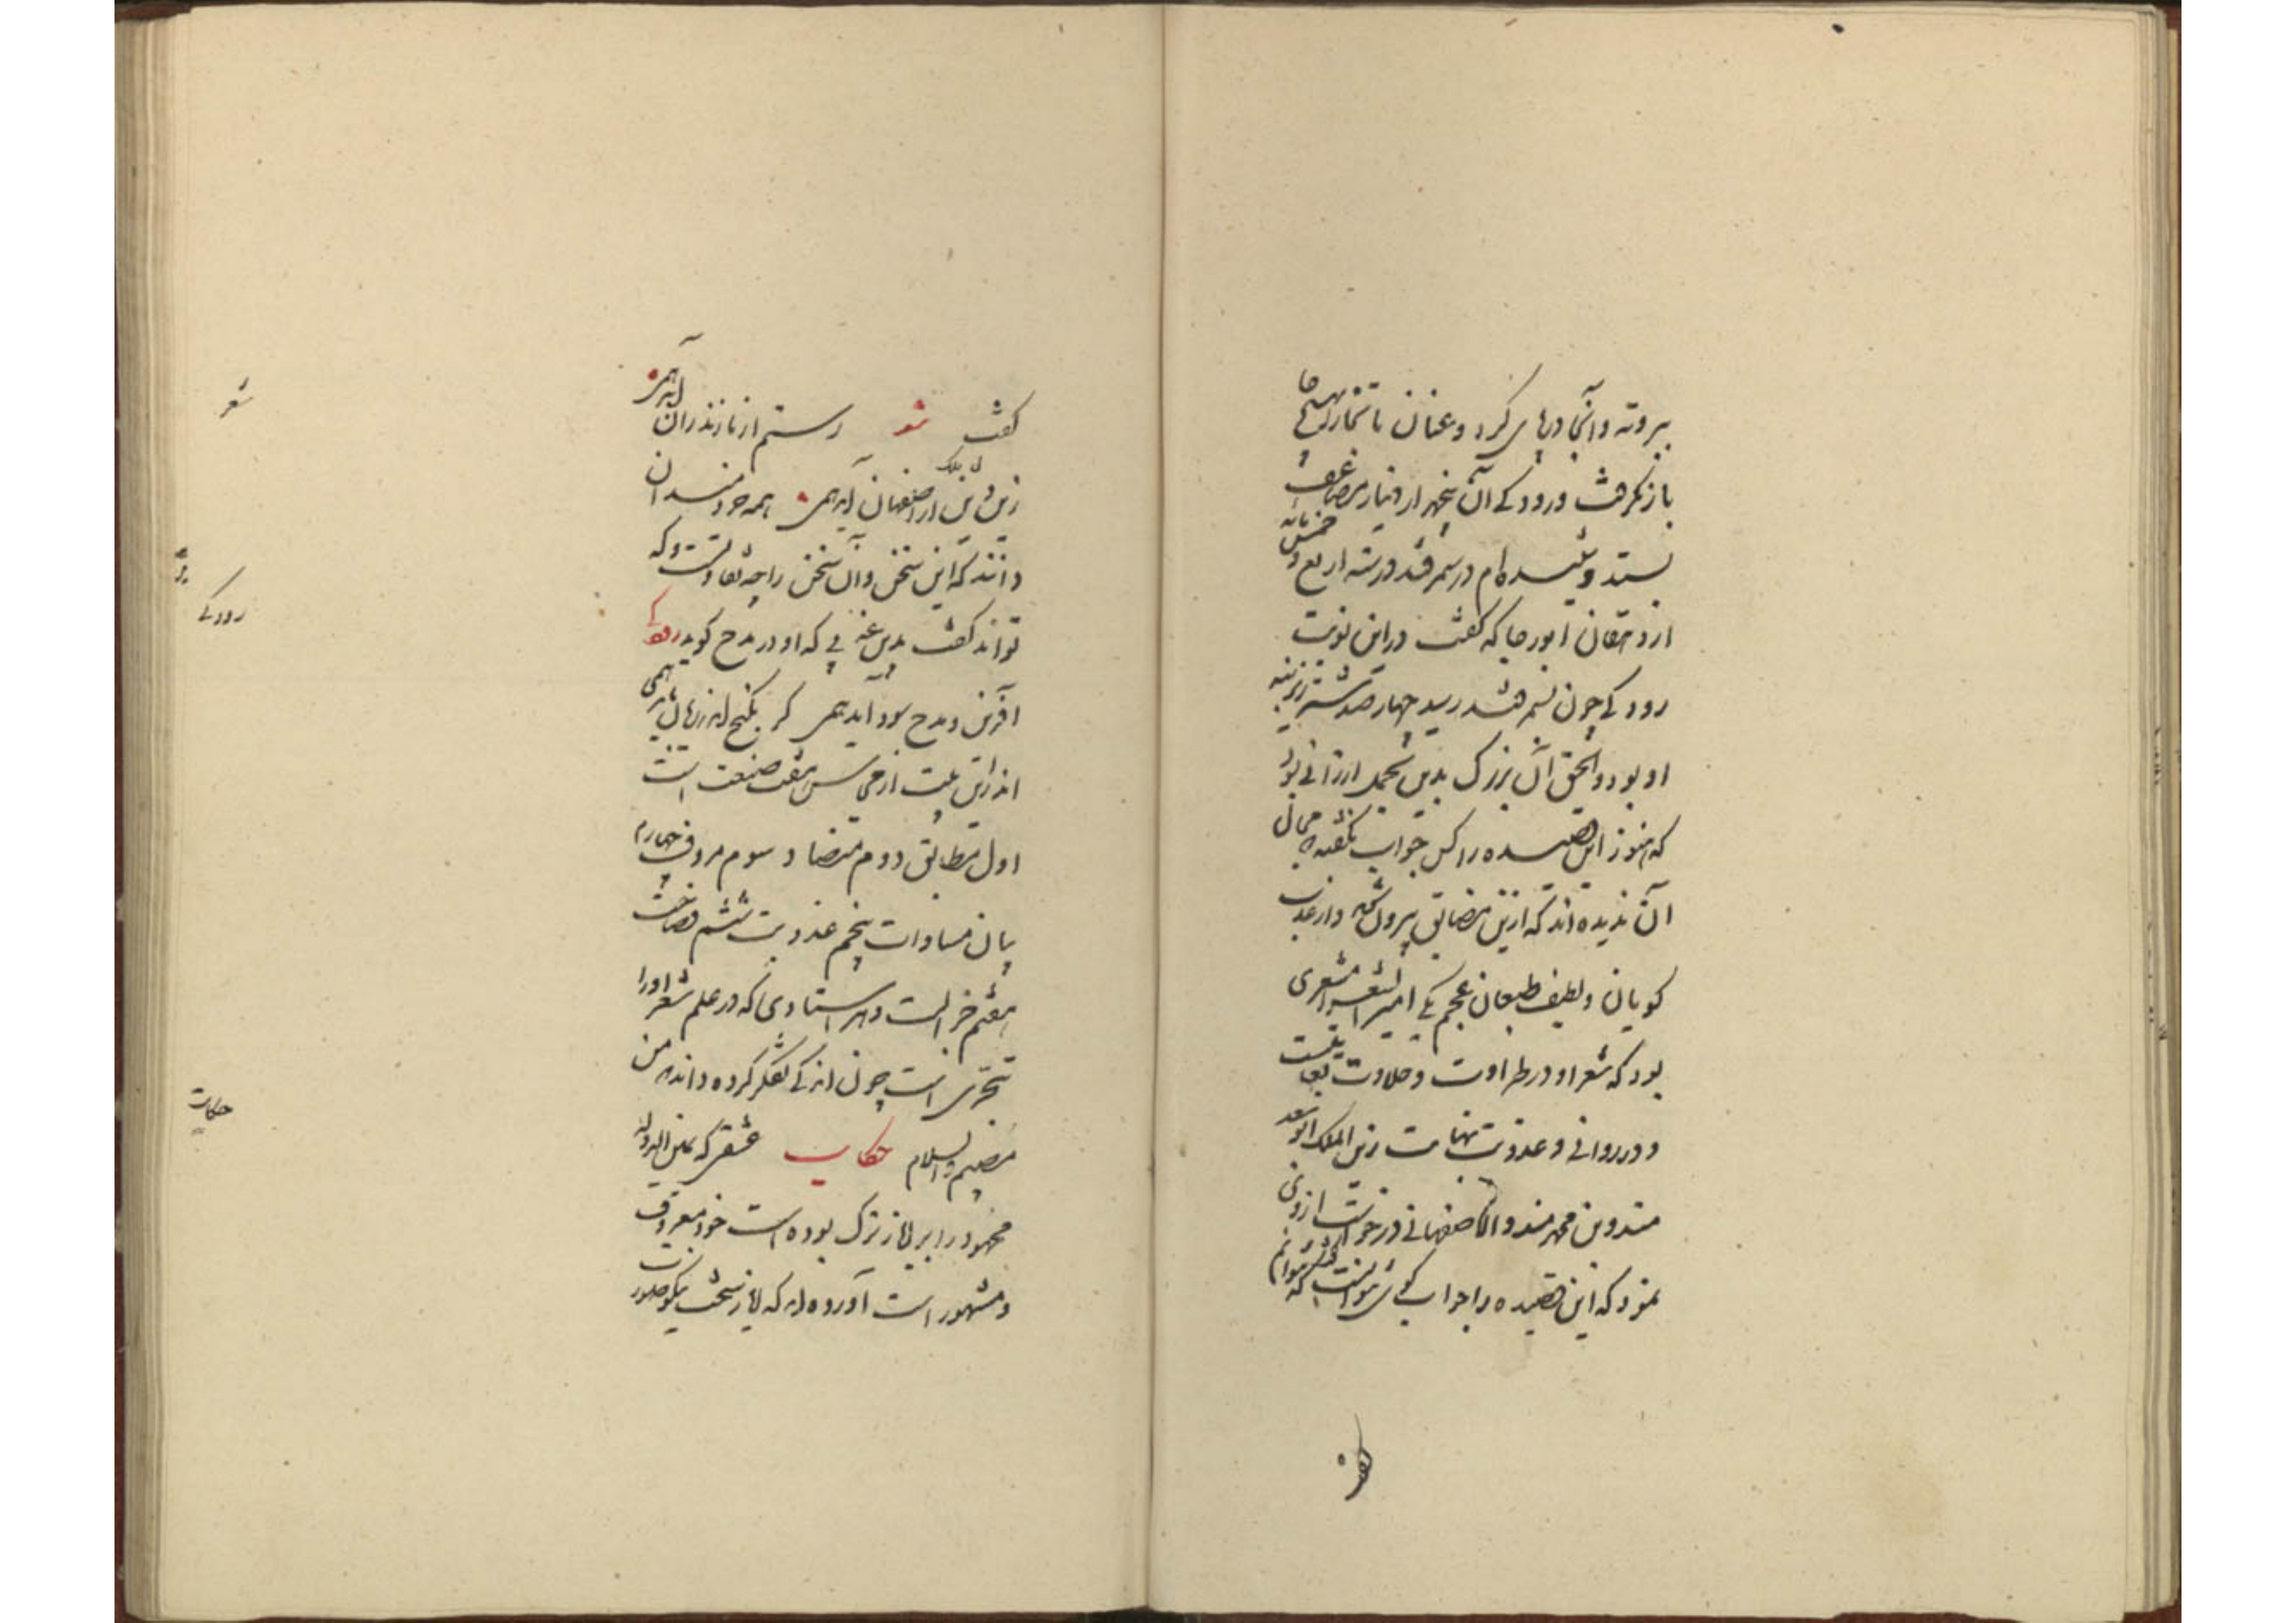 ببرونه و آنجا در پای کرد و عنان تا بخارا هیچ جا
باز نگرفت و رودکی آن پنجهزار دینار مضاعف
بستد و شنیده ام در سمرقند در سنه اربع و خمسمائه
از دهقان ابورجا که گفت در این نوبت
رودکی چون بسمرقند رسید چهارصد شتر زیر بنه
او بود و الحق آن بزرگ بدین تجمل ارزانی بود
که هنوز این قصیده را کس جواب نگفته مجال
آن ندیده اند که ازین مضایق بیرون و از عذب
کویان و لطیف طبعان عجم یکی امیر الشعرا معزی
بود که شعر او در طراوت و حلاوت بغایتست
و در روانی و عذوبت بنهایت زین الملک ابو سعد
هندو بن محمد هندو الاصفهانی در خواست از وی
نمود که این قصیده را جواب کوی کفت نتوانم
کفت
کفت شعر رستم از مازندران آید همی
زین ملک از اصفهان آید همی همه خردمندان
دانند که این سخن و آن سخن را چه تفاوتست و که
تواند کفت بدین عذبی که او در مدح کوید رودکی
آفرین و مدح سود آید همی کر بکنج اندر زیان آید همی
اندرین بیت از محاسن هفت صنعت است
اول مطابق دوم متضاد سوم مردف چهارم
بیان مساوات پنجم عذوبت ششم فصاحت
هفتم جزالت و هر استادی که در علم شعر او را
تبحری است چون اندکی تفکر کرده داند که من
مصیبم والسلام حکایت عشقی که یمین الدوله
محمود را بر ایاز ترک بوده است خود معروف
و مشهور است آورده اند که ایاز سخت نیکو صورت
شعر
رودکی
حکایت